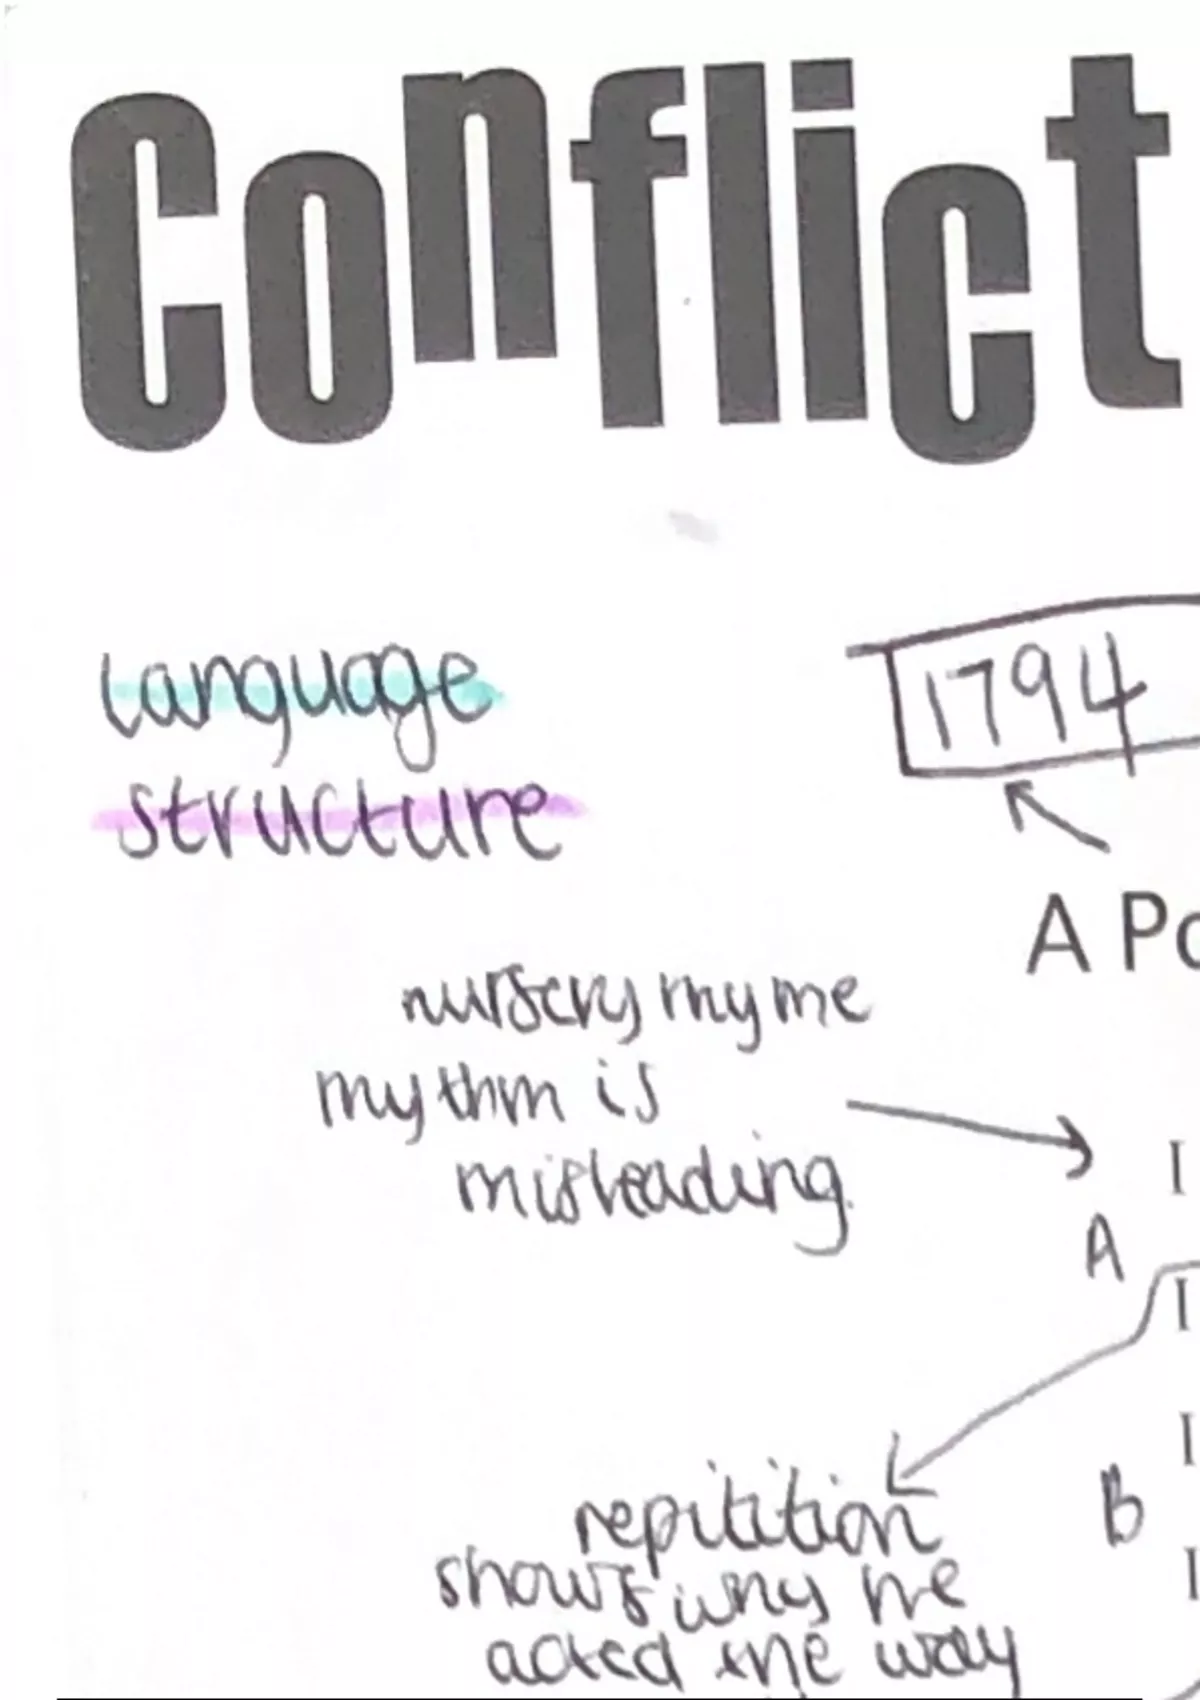 Conflict
language
structure
1794
A Po
nursery rhyme
rhythm is
misleading.
I
A
I
I
B
I
repitition
shows why he
acted the way